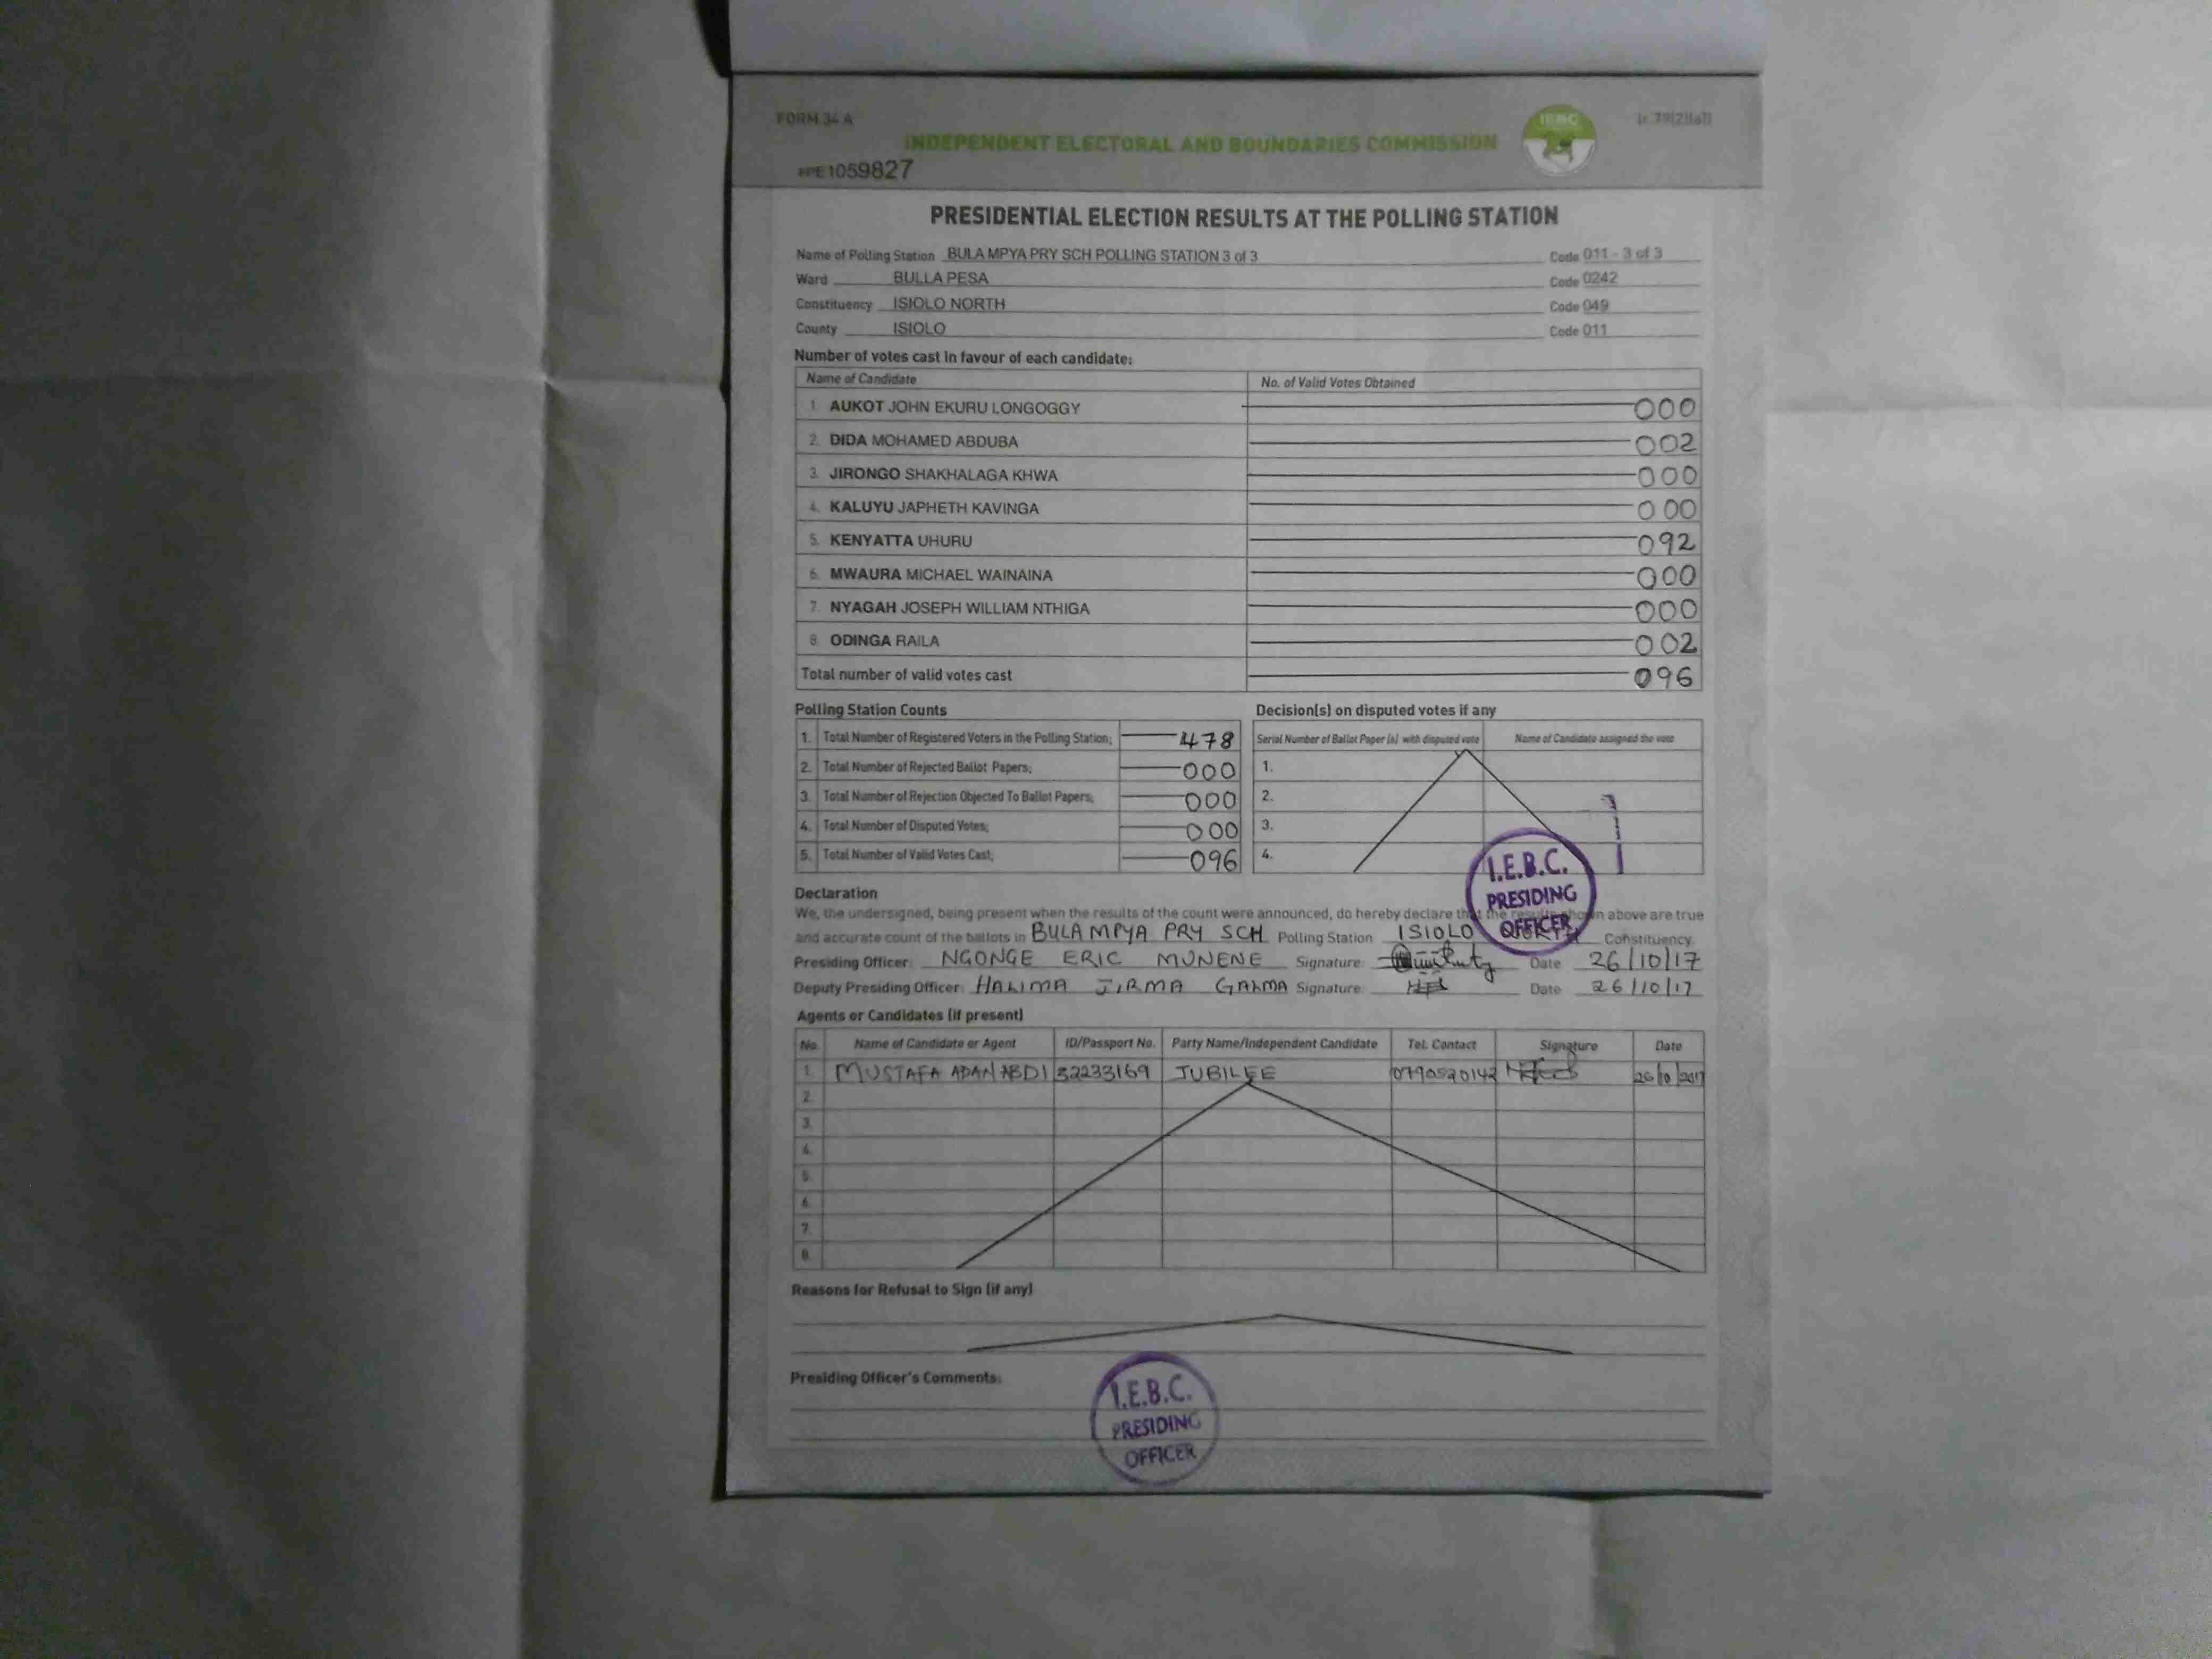 FORM 34 A
IEBC
(r. 79(2)(a))
INDEPENDENT ELECTORAL AND BOUNDARIES COMMISSION
PPE 1059827
PRESIDENTIAL ELECTION RESULTS AT THE POLLING STATION
Name of Polling Station BULA MPYA PRY SCH POLLING STATION 3 of 3 Code 011 - 3 of 3
Ward BULLA PESA Code 0242
Constituency ISIOLO NORTH Code 049
County ISIOLO Code 011
Number of votes cast in favour of each candidate:
Name of Candidate No. of Valid Votes Obtained
1. AUKOT JOHN EKURU LONGOGGY 000
2. DIDA MOHAMED ABDUBA 002
3. JIRONGO SHAKHALAGA KHWA 000
4. KALUYU JAPHETH KAVINGA 000
5. KENYATTA UHURU 092
6. MWAURA MICHAEL WAINAINA 000
7. NYAGAH JOSEPH WILLIAM NTHIGA 000
8. ODINGA RAILA 002
Total number of valid votes cast 096
Polling Station Counts
1. Total Number of Registered Voters in the Polling Station; 478
2. Total Number of Rejected Ballot Papers; 000
3. Total Number of Rejection Objected To Ballot Papers; 000
4. Total Number of Disputed Votes; 000
5. Total Number of Valid Votes Cast; 096
Decision(s) on disputed votes if any
Serial Number of Ballot Paper (s) with disputed vote Name of Candidate assigned the vote
1.
2.
3.
4.
I.E.B.C.
PRESIDING
OFFICER
Declaration
We, the undersigned, being present when the results of the count were announced, do hereby declare that the results shown above are true
and accurate count of the ballots in BULA MPYA PRY SCH Polling Station ISIOLO NORTH Constituency.
Presiding Officer: NGONGE ERIC MUNENE Signature: Date 26/10/17
Deputy Presiding Officer: HALIMA JIRMA GALMA Signature: Date 26/10/17
Agents or Candidates (if present)
No. Name of Candidate or Agent ID/Passport No. Party Name/Independent Candidate Tel. Contact Signature Date
1. MUSTAFA ADAN ABDI 32233169 JUBILEE 0790520142 26/10/2017
2.
3.
4.
5.
6.
7.
8.
Reasons for Refusal to Sign (if any)
Presiding Officer's Comments:
I.E.B.C.
PRESIDING
OFFICER